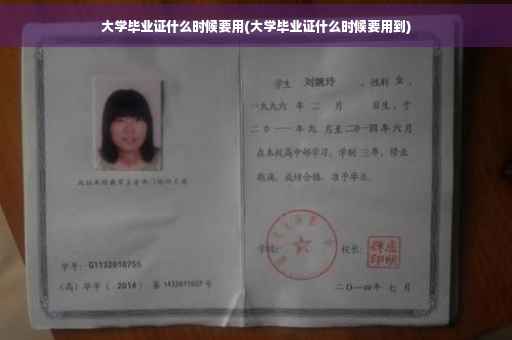 大学毕业证什么时候要用(大学毕业证什么时候要用到)
学生 刘婉玲 ,性别 女 ,
一九九六 年 二 月 日生,于
二〇一一年九 月至二〇一四年六月
在本校高中部学习,学制 三年,修业
期满,成绩合格,准予毕业。
学校: 校长:
学号: G1132010755
(高)毕字( 2014 )第 1432011027 号
二〇一四年 七 月